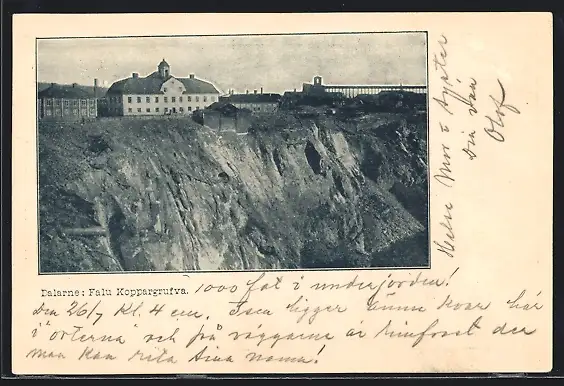 Dalarne: Falu Koppargrufva.
1000 fot i underjorden!
Den 26/7 Kl. 4 em. Isen ligger ännu kvar här
i "orterna" och på väggarne är rimfrost der
man kan rita sina namn!
Helsa Mor o Syster
Din vän
Olof